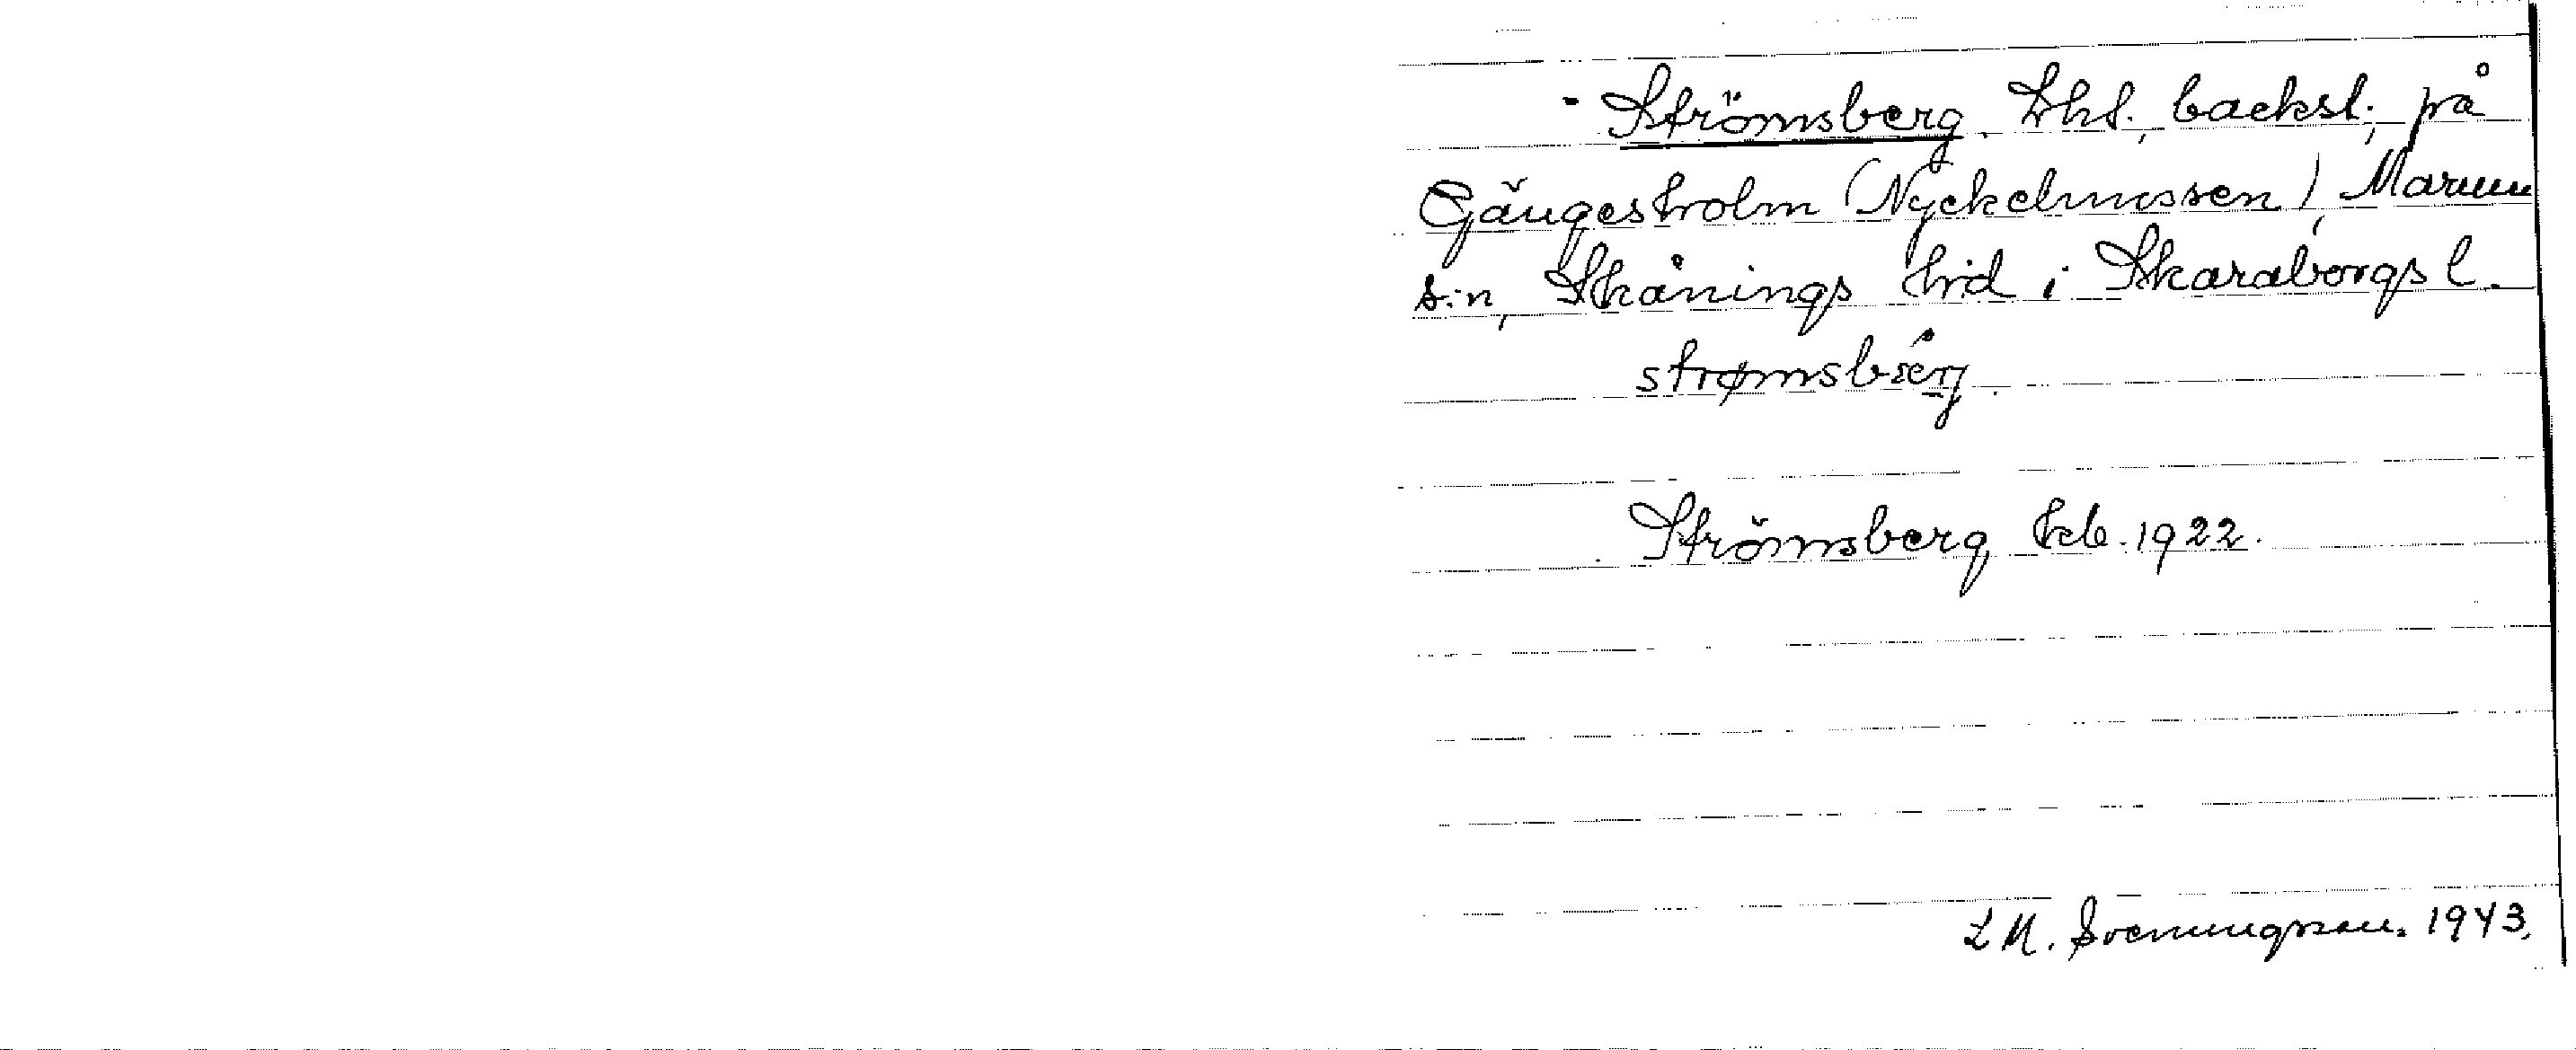 - Strömsberg. Lht., backst., på
Gängesholm (Nyckelmossen), Marum
s:n, Skånings hd i Skaraborgs l.
strømsbærj.
Strömsberg kb. 1922.
L M. Svenungsson. 1943.